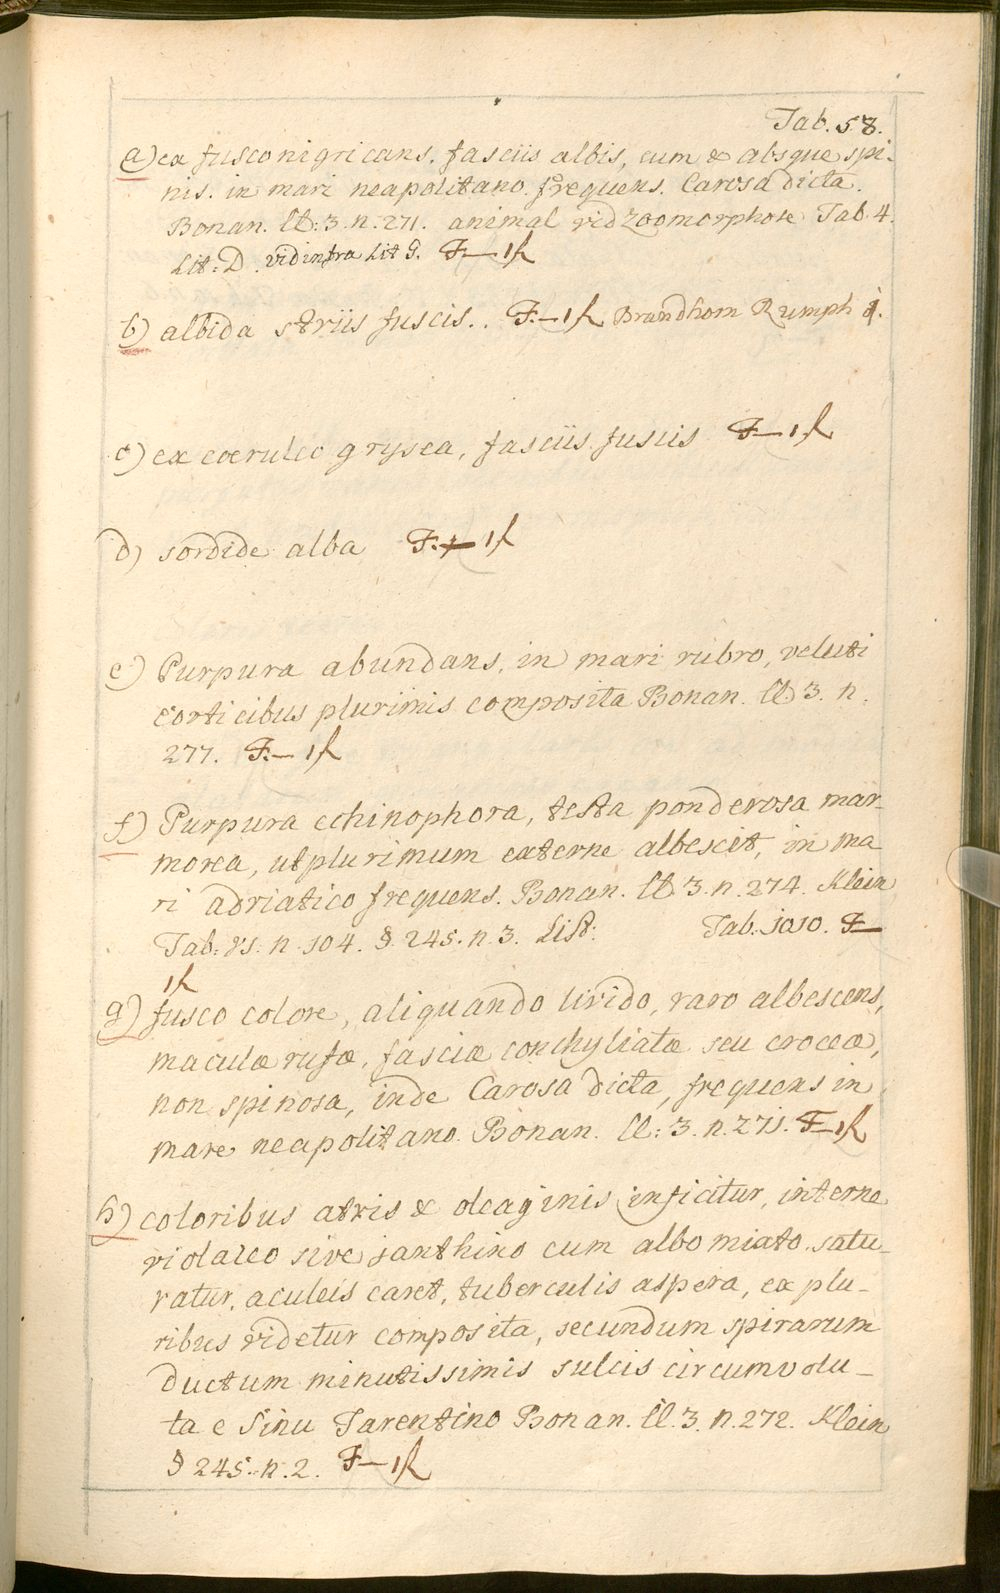 Tab. 58.
a) ex fusco nigricans, fasciis albis, cum & absque spi-
nis. in mari neapolitano frequens. Carosa dicta.
Bonan. Cl: 3. n. 271. animal vid Zoomorphose Tab. 4.
Lit: D. vid infra Lit g. F— 1 f
b) albida striis fuscis.. F.— 1 f Brandhorn Rumph
c) ex coeruleo grysea, fasciis fuscis F— 1 f
d) sordide alba F. 1 f
e) Purpura abundans, in mari rubro, veluti
corticibus plurimis composita Bonan. Cl 3. n.
277. F.— 1 f
f) Purpura echinophora, testa ponderosa mar-
morea, utplurimum externe albescit, in ma
ri adriatico frequens. Bonan. Cl 3. n. 274. Klein
Tab: n. 104. §. 245. n. 3. List: Tab. 1010. F—
1 f
g) fusco colore, aliquando livido, raro albescens,
maculæ rufæ, fasciæ conchyliatæ seu croceæ,
non spinosa, inde Carosa dicta, frequens in
mare neapolitano. Bonan. Cl: 3. n. 271. F—1 f
h) coloribus atris & oleaginis inficitur, interne
violaceo sive janthino cum albo miato satu-
ratur, aculeis caret, tuberculis aspera, ex plu-
ribus videtur composita, secundum spirarum
ductum minutissimis sulcis circumvolu-
ta e Sinu Tarentino Bonan. Cl. 3. n. 272. Klein
§ 245. n. 2. F— 1 f